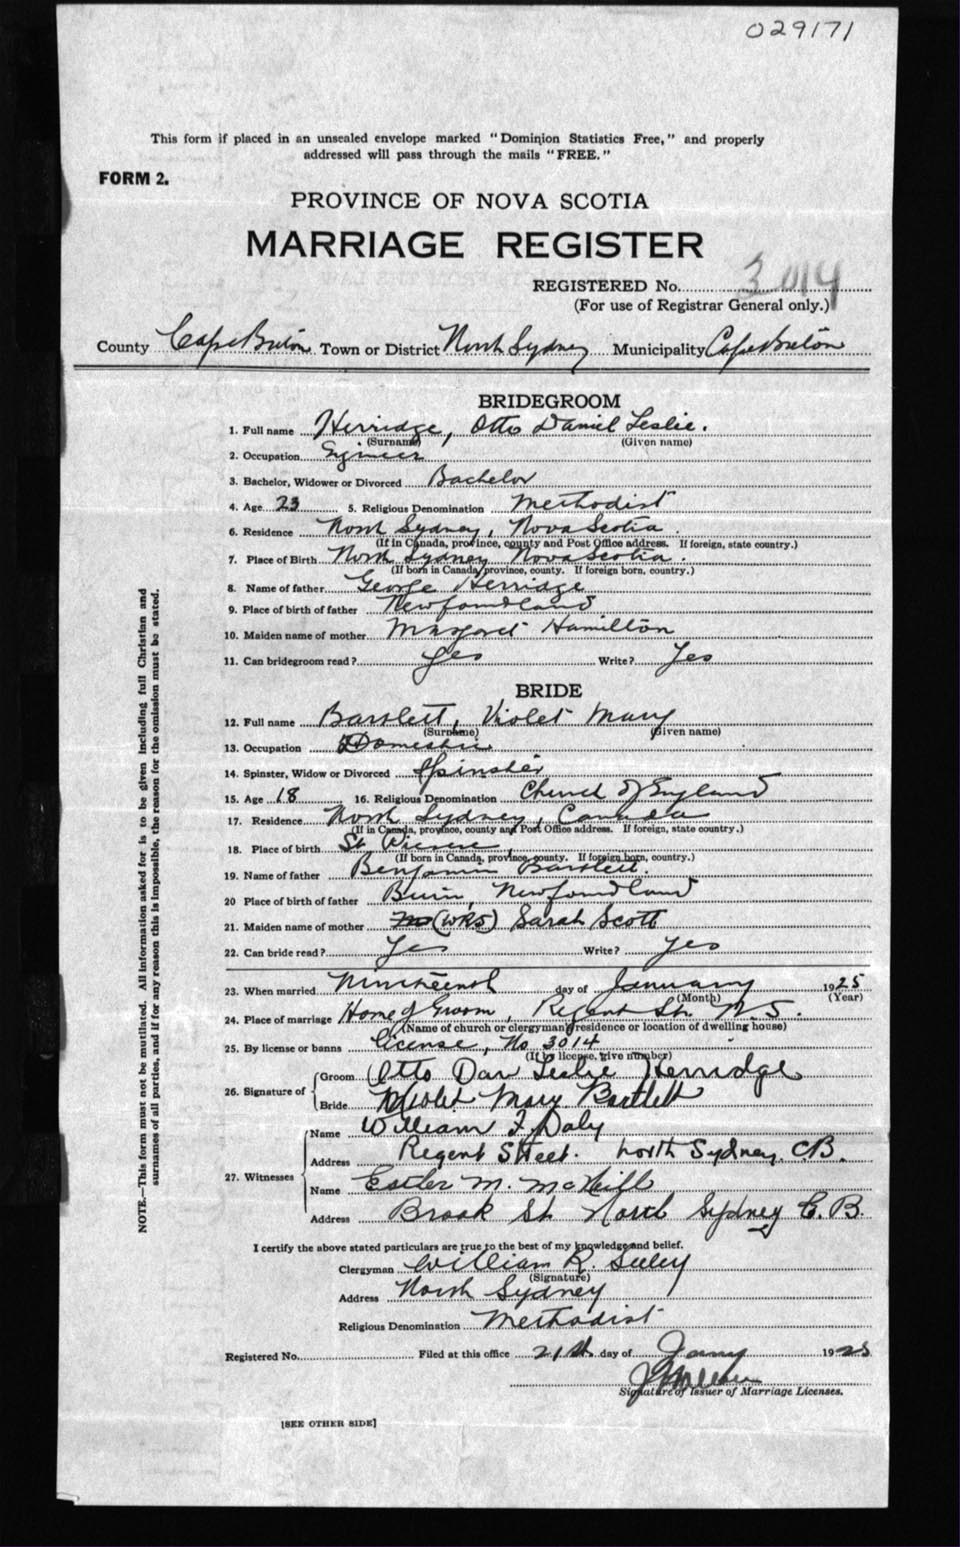 029171
This form if placed in an unsealed envelope marked "Dominion Statistics Free," and properly
addressed will pass through the mails "FREE."
FORM 2.
PROVINCE OF NOVA SCOTIA
MARRIAGE REGISTER
REGISTERED No. 3014
(For use of Registrar General only.)
County Cape Breton Town or District North Sydney Municipality Cape Breton
BRIDEGROOM
1. Full name Herridge, Otto Daniel Leslie.
(Surname) (Given name)
2. Occupation
3. Bachelor, Widower or Divorced Bachelor
4. Age 23 5. Religious Denomination Methodist
6. Residence North Sydney, Nova Scotia
(If in Canada, province, county and Post Office address. If foreign, state country.)
7. Place of Birth North Sydney Nova Scotia.
(If born in Canada, province, county. If foreign born, country.)
8. Name of father George Herridge
9. Place of birth of father Newfoundland
10. Maiden name of mother Margaret Hamilton
11. Can bridegroom read? Yes Write? Yes
BRIDE
12. Full name Bartlett, Violet Mary
(Surname) (Given name)
13. Occupation Domestic
14. Spinster, Widow or Divorced Spinster
15. Age 18 16. Religious Denomination Church of England
17. Residence North Sydney, Canada
(If in Canada, province, county and Post Office address. If foreign, state country.)
18. Place of birth St Pierre
(If born in Canada, province, county. If foreign born, country.)
19. Name of father Benjamin Bartlett.
20 Place of birth of father Burin, Newfoundland
21. Maiden name of mother (WRS) Sarah Scott
22. Can bride read? Yes Write? Yes
23. When married Nineteenth day of January 1925
(Month) (Year)
24. Place of marriage Home of Groom, Regent St. N.S.
(Name of church or clergyman's residence or location of dwelling house)
25. By license or banns License, No 3014
(If by license, give number)
26. Signature of
Groom Otto Dan Leslie Herridge
Bride Violet Mary Bartlett
27. Witnesses
Name William F. Daly
Address Regent Street. North Sydney, C.B.
Name Esther M. McNeill
Address Brook St. North Sydney C.B.
I certify the above stated particulars are true to the best of my knowledge and belief.
Clergyman William R. Seeley
(Signature)
Address North Sydney
Religious Denomination Methodist
Registered No. Filed at this office 21st day of Jany 1925
Signature of Issuer of Marriage Licenses.
[SEE OTHER SIDE]
NOTE.—This form must not be mutilated. All information asked for is to be given including full Christian and
surnames of all parties, and if for any reason this is impossible, the reason for the omission must be stated.